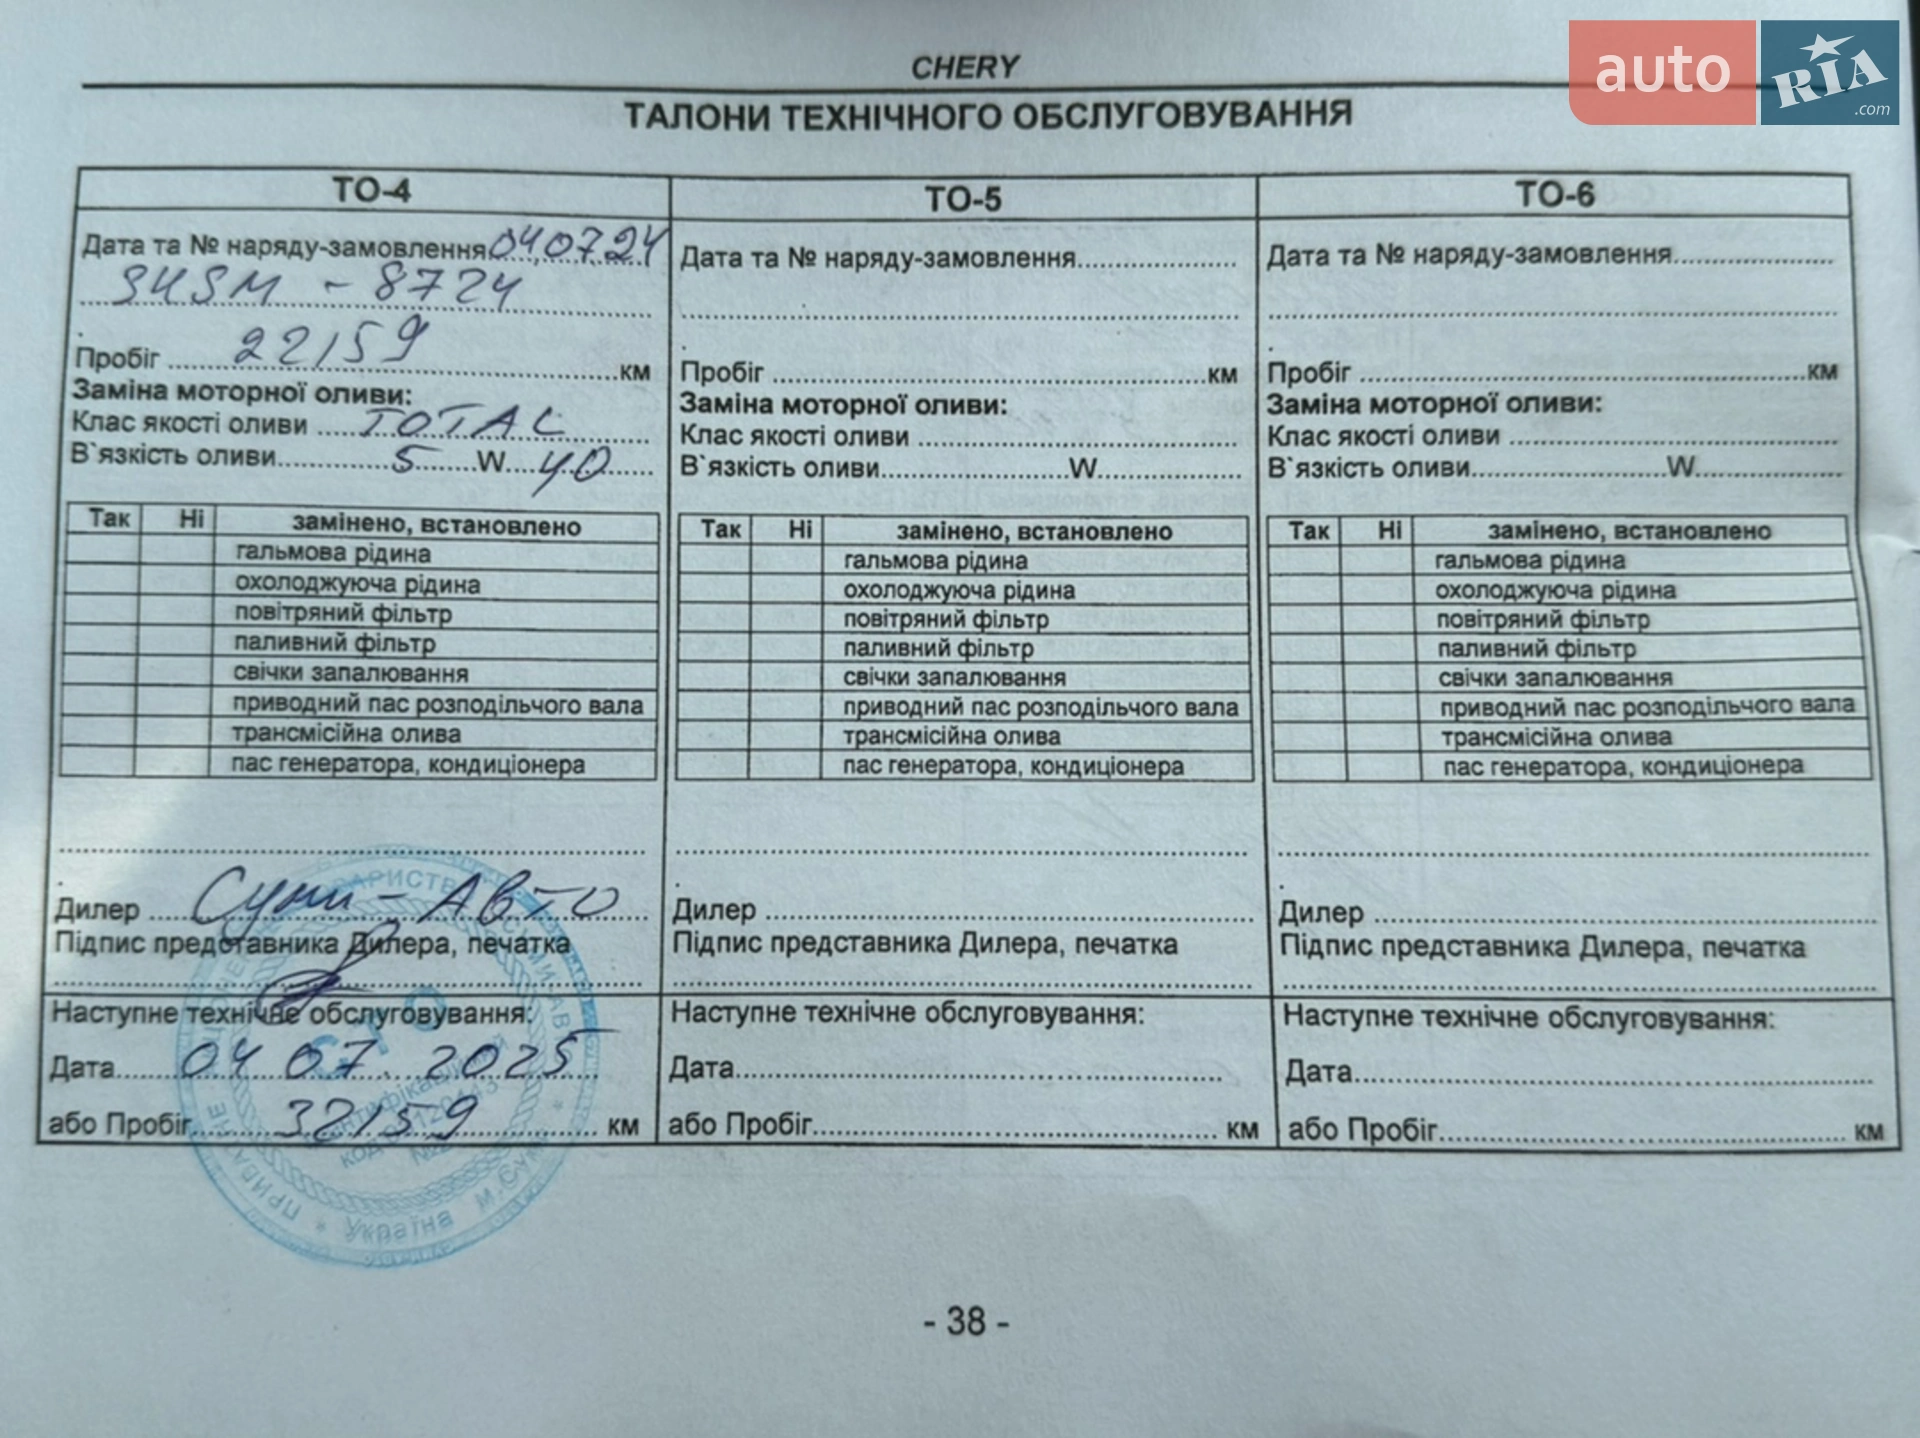 auto RIA .com
CHERY
ТАЛОНИ ТЕХНІЧНОГО ОБСЛУГОВУВАННЯ
ТО-4
Дата та № наряду-замовлення 04.07.24
- 8724
Пробіг 22159 км
Заміна моторної оливи:
Клас якості оливи TOTAL
В`язкість оливи 5 W 40
Так Ні замінено, встановлено
гальмова рідина
охолоджуюча рідина
повітряний фільтр
паливний фільтр
свічки запалювання
приводний пас розподільчого вала
трансмісійна олива
пас генератора, кондиціонера
Дилер Суми-Авто
Підпис представника Дилера, печатка
Наступне технічне обслуговування:
Дата 04 07. 2025
або Пробіг 32159 км
СТО
Україна м.Суми
ТО-5
Дата та № наряду-замовлення
Пробіг км
Заміна моторної оливи:
Клас якості оливи
В`язкість оливи W
Так Ні замінено, встановлено
гальмова рідина
охолоджуюча рідина
повітряний фільтр
паливний фільтр
свічки запалювання
приводний пас розподільчого вала
трансмісійна олива
пас генератора, кондиціонера
Дилер
Підпис представника Дилера, печатка
Наступне технічне обслуговування:
Дата
або Пробіг км
ТО-6
Дата та № наряду-замовлення
Пробіг км
Заміна моторної оливи:
Клас якості оливи
В`язкість оливи W
Так Ні замінено, встановлено
гальмова рідина
охолоджуюча рідина
повітряний фільтр
паливний фільтр
свічки запалювання
приводний пас розподільчого вала
трансмісійна олива
пас генератора, кондиціонера
Дилер
Підпис представника Дилера, печатка
Наступне технічне обслуговування:
Дата
або Пробіг км
- 38 -